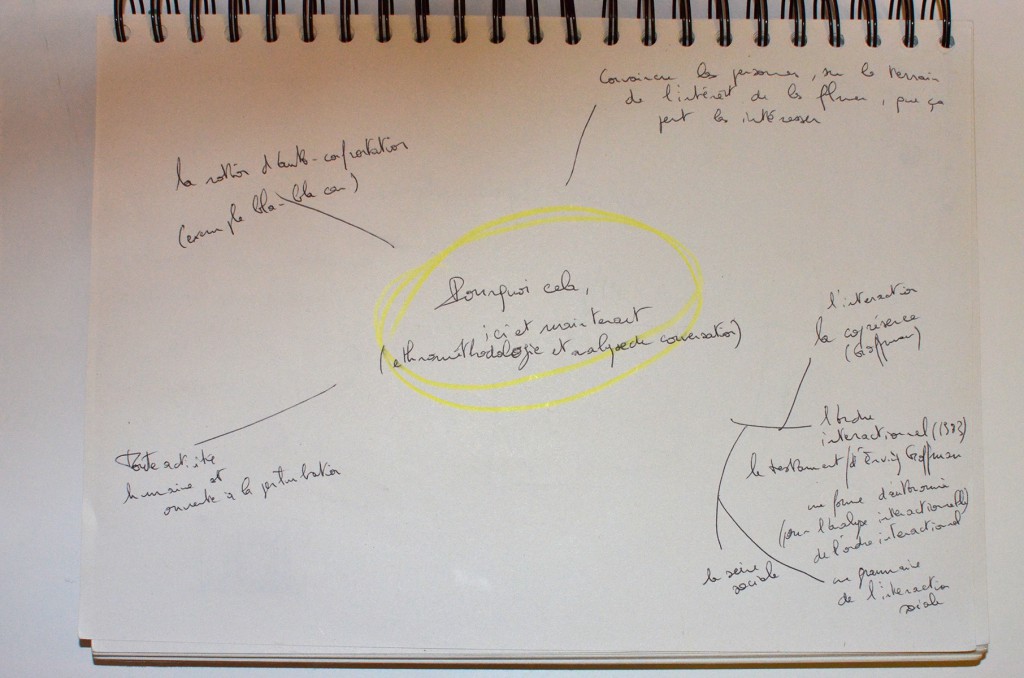 Convaincre les personnes, sur le terrain
de l'intérêt de les filmer, que ça
peut les intéresser
la notion d'auto-confrontation
(exemple bla-bla car)
Pourquoi cela,
ici et maintenant
(ethnométhodologie et analyse de conversation)
l'interaction
la coprésence
(Goffman)
Toute activité
humaine est
ouverte à la perturbation
l'ordre
interactionnel (1983)
le testament d'Erving Goffman
une forme d'autonomie
(pour l'analyse interactionnelle)
de l'ordre interactionnel
la scène
sociale
une grammaire
de l'interaction
sociale